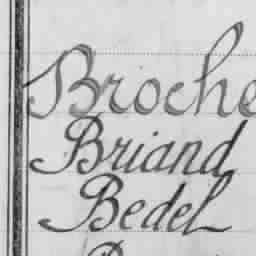 Broche
Briand
Bedel